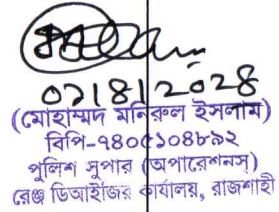 ০১৮১২০২৪
(মোহাম্মদ মনিরুল ইসলাম)
বিপি-৭৪০৫১০৪৮৯২
পুলিশ সুপার (অপারেশনস)
রেঞ্জ ডিআইজির কার্যালয়, রাজশাহী